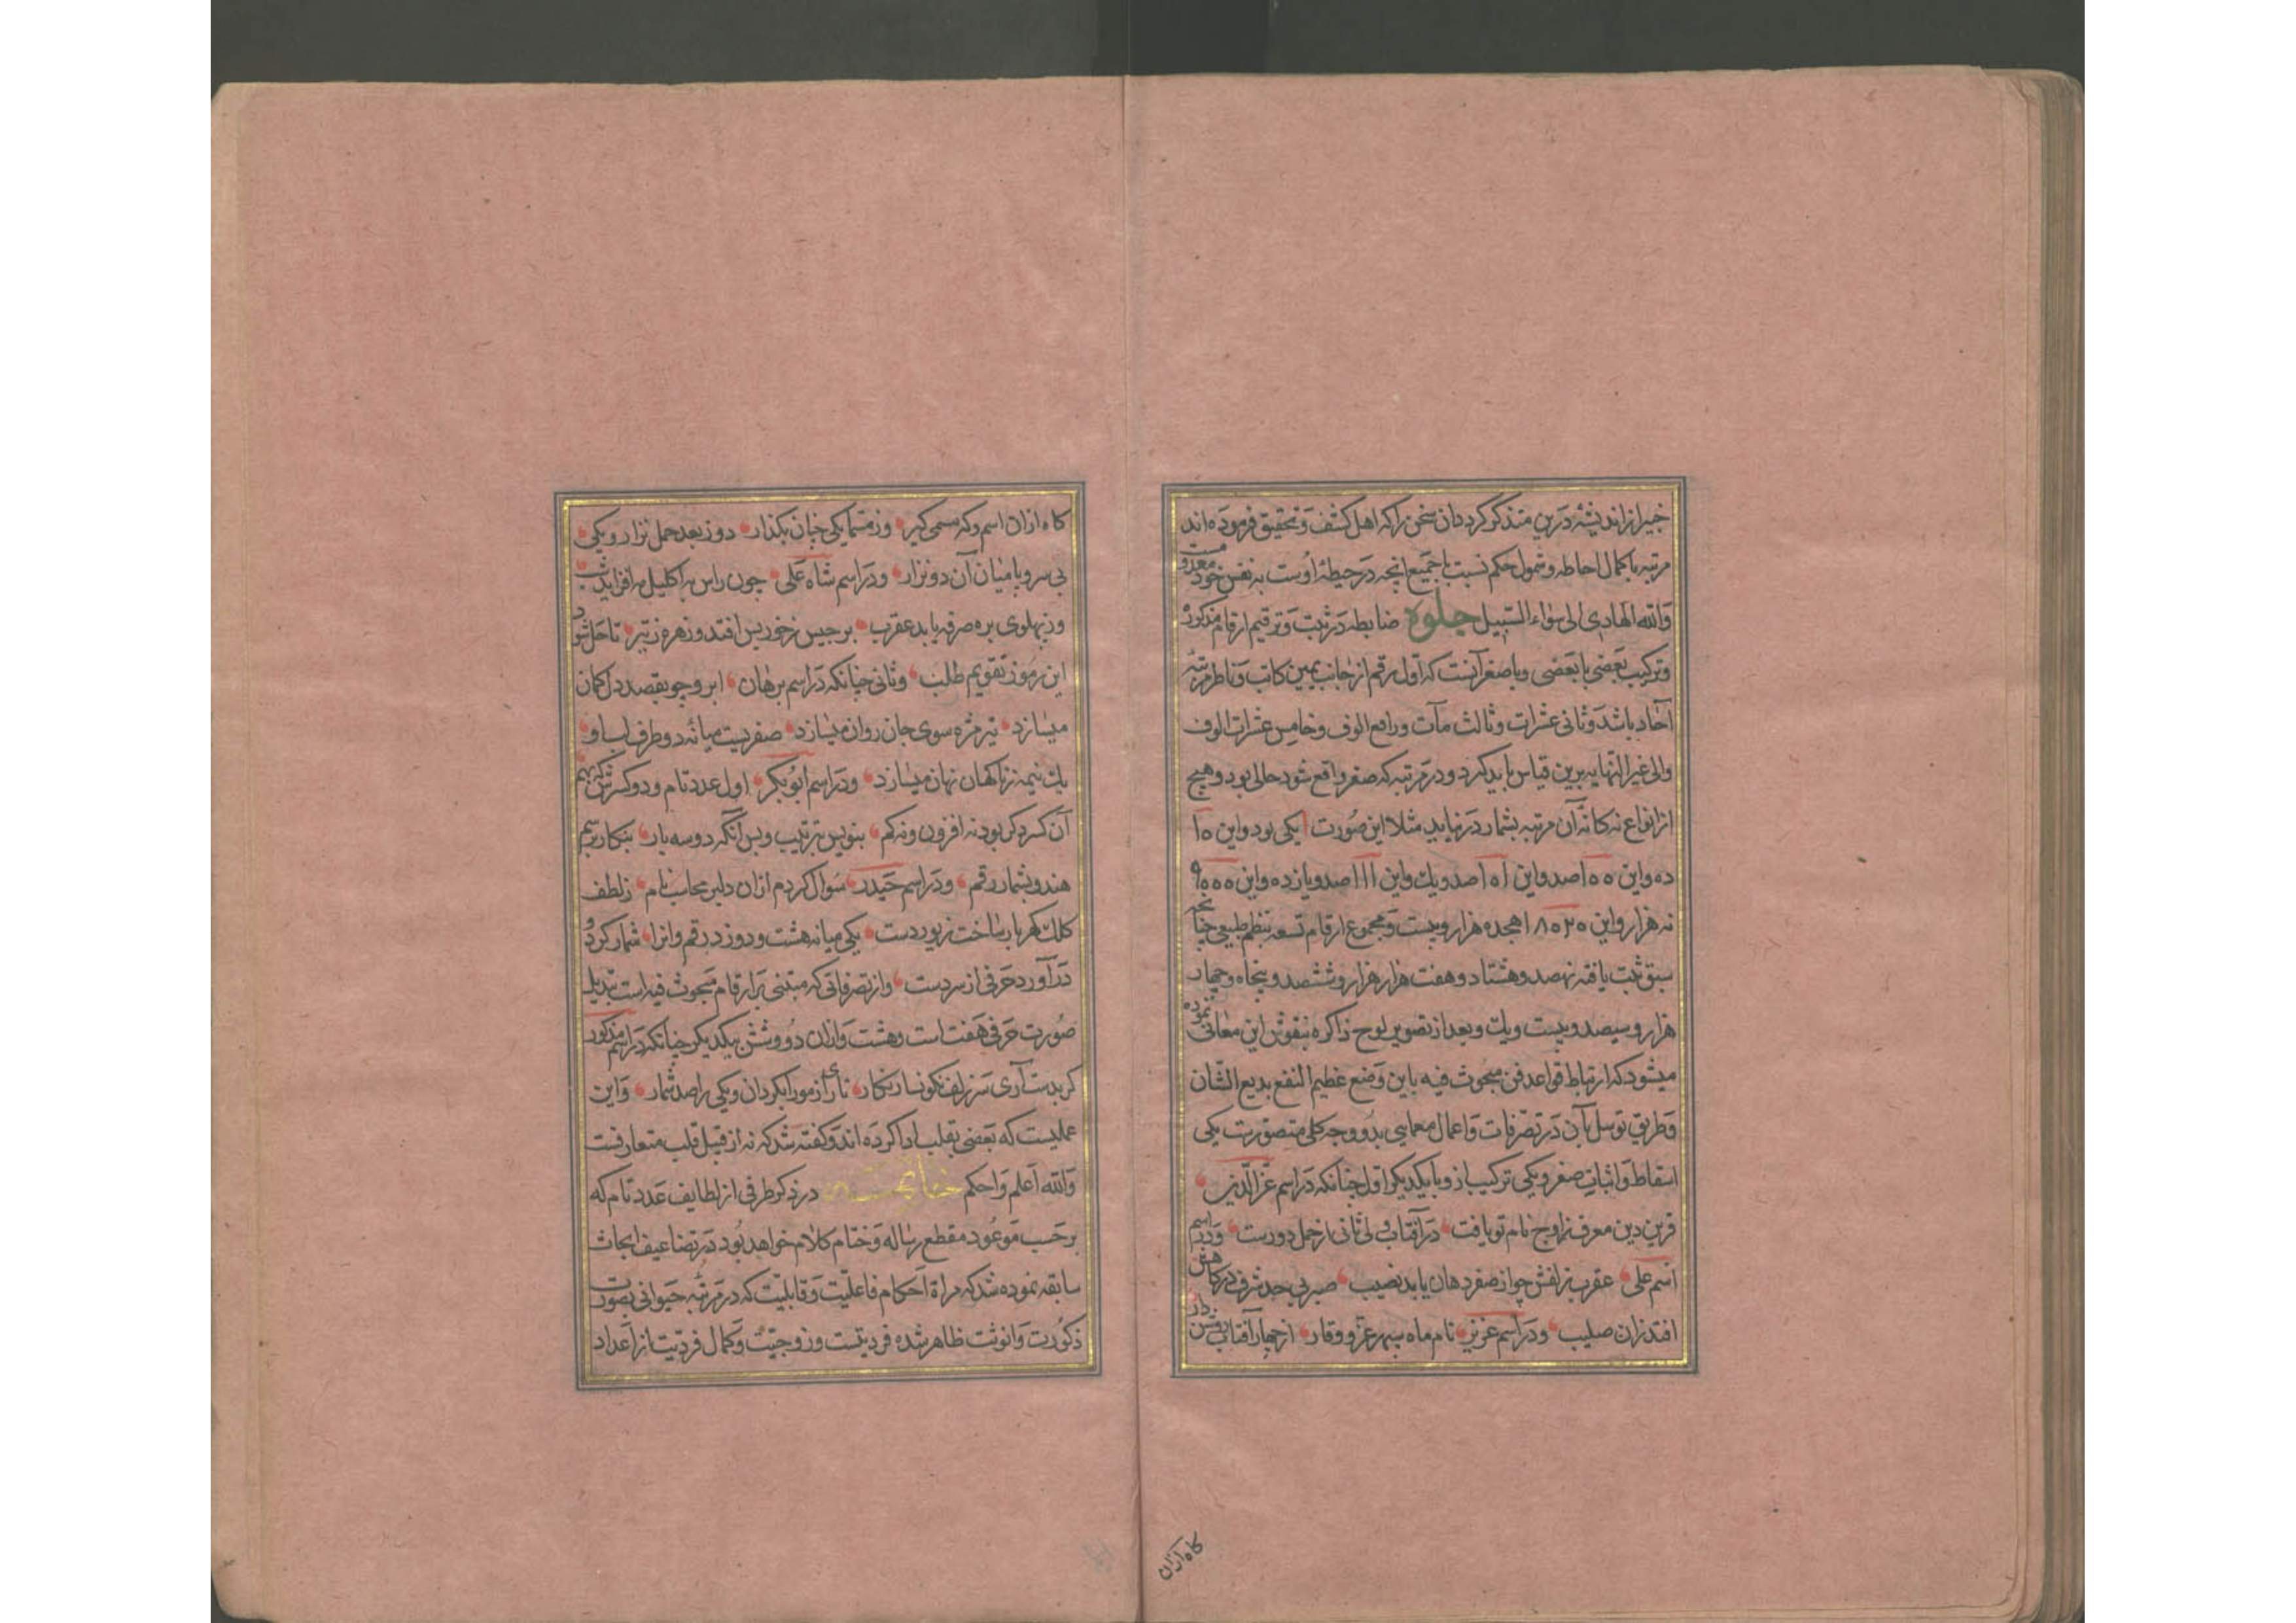 خبیر از اندیشهٔ درین متذکر کرد دان سخن را که اهل کشف و تحقیق فرموده اند
مرتبه با کمال احاطه و شمول حکم نسبت با جمیع انچه در حیطهٔ اوست به نفس خود معدود نیست
والله الهادی الی سواء السبیل جلوه ضابطه در ثبت و ترقیم ارقام مذکوره
و ترکیب بعضی با بعضی و با صفر آنست که اول رقم از جانب یمین کاتب و ناظر مرتبهٔ
آحاد باشد و ثانی عشرات و ثالث مآت و رابع الوف و خامس عشرات الوف
والی غیر النهایه برین قیاس باید کرد و در مرتبه که صفر واقع شود خالی بود و هیچ
از انواع نه کانهٔ آن مرتبه بشمار در نیاید مثلا این صورت ۱ یکی بود و این ۱۰
ده و این ۱۰۰ صد و این ۱۰۱ صد و یک و این ۱۱۱ صد و یازده و این ۹۰۰۰
نه هزار و این ۱۸۰۲۰ هجده هزار و بیست و مجموع ارقام تسعه بنظم طبیعی چنانچه
سبق ثبت یافته نهصد و هشتاد و هفت هزار هزار و ششصد و پنجاه و چهار
هزار و سیصد و بیست و یک و بعد از تصویر لوح ذاکره بنقوش این معانی نموده
میشود که ارتباط قواعد فن مبحوث فیه باین وضع عظیم النفع بدیع الشان
و طریق توسل بآن در تصرفات و اعمال معمایی بدو وجه کلی متصورست یکی
اسقاط و اثبات صفر و یکی ترکیب از و با یکدیکر اول چنانکه در اسم عز الدین
قرین دین معرف ز اوج نام تو یافت در آفتاب ولی ثانی از حمل دورست و در اسم
اسم علی عقرب زلفش چو از صفر دهان یابد نصیب صبر بی حد شرف در کاهش
افتد زان صلیب و در اسم عزیز نام ماه سپهر عز و وقار از چهار آفتاب روشن دار
کاه ازان
کاه ازان اسم و که مسمی کیر وز مسما یکی چنان بکذار دو ز بعد حمل نزار و یکی
بی سر و پا میان آن دو نزار و در اسم شاه علی چون راس به اکلیل مه افزاید شب
وز پهلوی بره صرفه یابد عقرب برجیس ز خور پس افتد و زهره ز تیر تا حل شود
این رموز تقویم طلب و ثانی چنانکه در اسم برهان ابرو چو بقصد دل کمان
میسازد تیر مژه سوی جان روان میسازد صفریست میانهٔ دو طرف لب او
یک نیمه ز ناکهان نهان میسازد و در اسم ابوبکر اول عدد تام و دو کسرش که بهم
آن کسر دکر بود نه افزون و نه کم بنویس بترتیب و پس آنکه دو سه بار بنکار برسم
هندو بشمار رقم و در اسم حیدر سوال کردم ازان دلبر محاسب نام ز لطف
کلک کهربار ساخت زیور دست یکی میانه هشت و دو زد رقم وانرا شمار کرد و
درآورد حرفی از سر دست و از تصرفاتی که مبتنی بر ارقام مبحوث فیه است تبدیل
صورت حرفی هفت است و هشت و ازان دو و شش بیکدیکر چنانکه در اسم مذکور
کر بدست آری سر زلف نکونسار نکار نای از مو را بکردان و یکی را صد شمار و این
عملیست که بعضی بقلب ادا کرده اند و کفته شد که نه از قبیل قلب متعارفست
والله اعلم و احکم خاتمه در ذکر طرفی از لطایف عدد تام که
بر حسب موعود مقطع رساله و ختام کلام خواهد بود در تضاعیف ابحاث
سابقه نموده شد که مرآة احکام فاعلیت و قابلیت که در مرتبه حیوانی بصورت
ذکورت و انوثت ظاهر شده فردیتست و زوجیت و کمال فردیت از اعداد